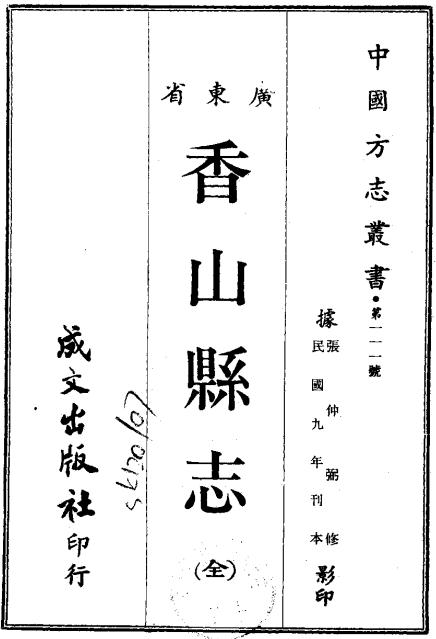 中國方志叢書・第一一一號
據
張仲弼修
民國九年刊本
影印
廣東省
香山縣志
(全)
成文出版社印行